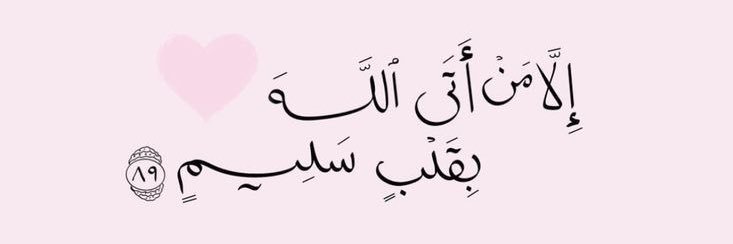 إِلَّا مَنۡ أَتَى ٱللَّهَ
بِقَلۡبٖ سَلِيمٖ ٨٩